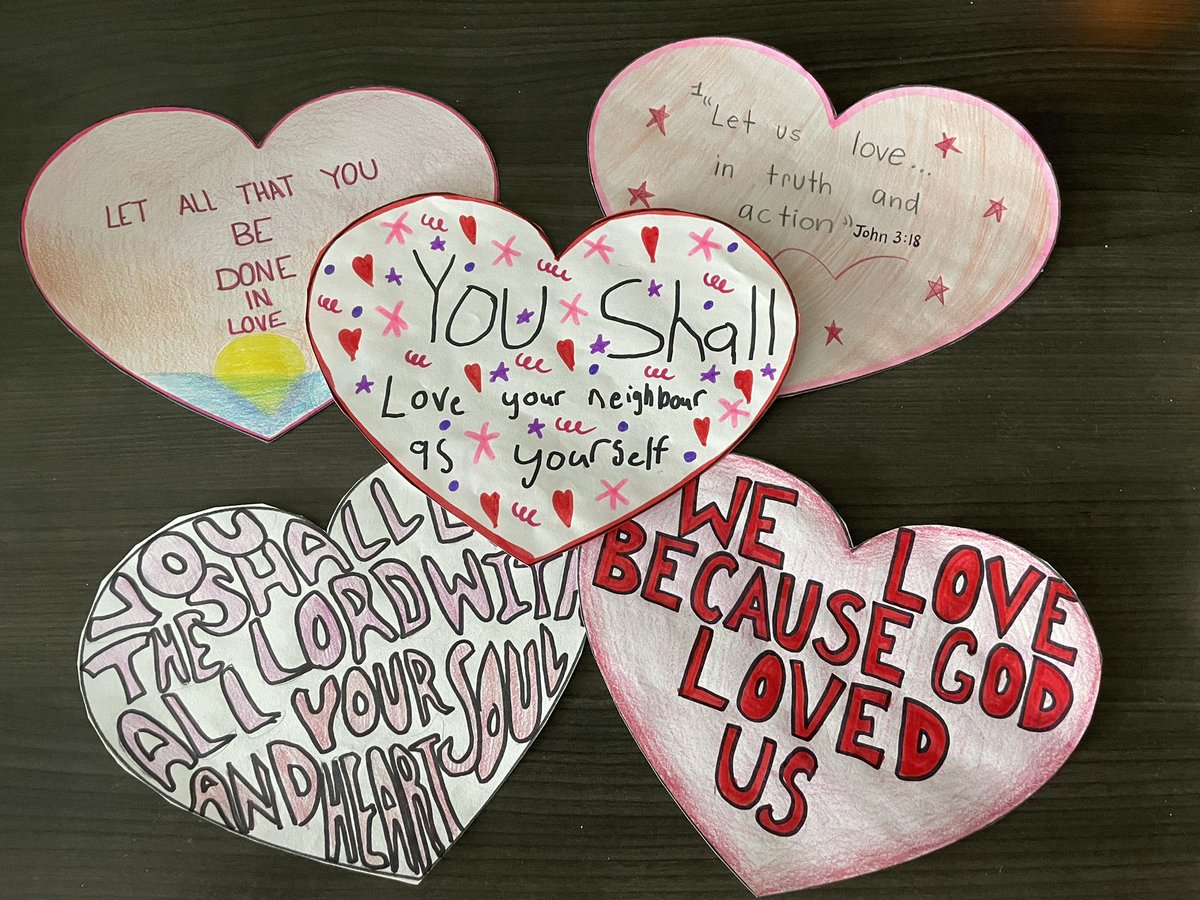 LET ALL THAT YOU
BE
DONE
IN
LOVE
1"Let us love...
in truth and
action" John 3:18
YOU Shall
Love your neighbour
as yourself
YOU SHALL
THE LORD WITH
ALL YOUR SOUL
AND HEART
WE LOVE
BECAUSE GOD
LOVED
US